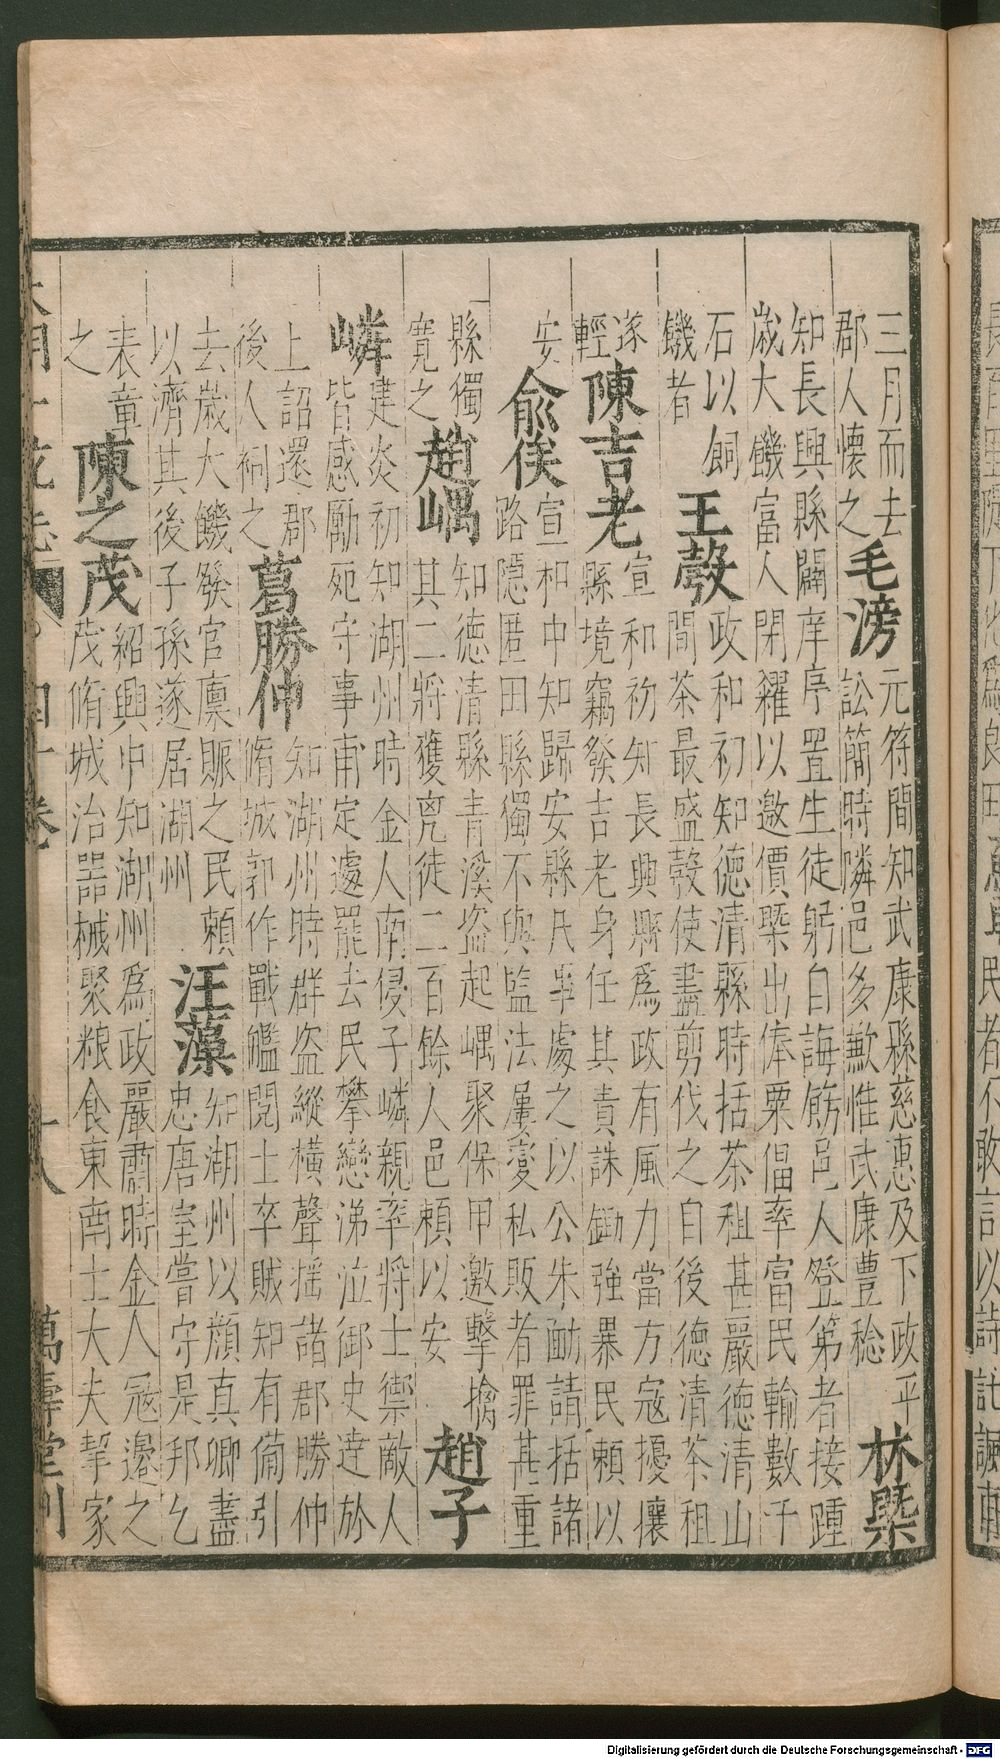 三月而去
郡人懷之
毛滂
元符間知武康縣慈惠及下政平
訟簡時隣邑多歉惟武康豊稔
林㮣
知長興縣闢庠序置生徒躬自誨飭邑人登第者接踵
歲大饑富人閉糴以邀價㮣出俸粟倡率富民輸數千
石以餉
饑者
王㲄
政和初知德清縣時括茶租甚嚴德清山
間茶最盛㲄使盡剪伐之自後德清茶租
遂
輕
陳吉老
宣和初知長興縣爲政有風力當方寇擾攘
縣境竊發吉老身任其責誅鋤強暴民賴以
安
俞俟
宣和中知歸安縣民事處之以公朱勔請括諸
路隱匿田縣獨不與監法屢變私販者罪甚重
縣獨
寬之
趙嵎
知德清縣青溪盜起嵎聚保甲邀擊擒
其二將獲兇徒二百餘人邑賴以安
趙子
嶙
建炎初知湖州時金人南侵子嶙親率將士禦敵人
皆感勵死守事甫定遽罷去民攀戀涕泣御史達於
上詔還郡
後人祠之
葛勝仲
知湖州時群盜縱橫聲揺諸郡勝仲
脩城郭作戰艦閱士卒賊知有備引
去歲大饑發官廪賑之民賴
以濟其後子孫遂居湖州
汪藻
知湖州以顔真卿盡
忠唐室嘗守是邦乞
表章
之
陳之茂
紹興中知湖州爲政嚴肅時金人冦邊之
茂脩城治器械聚粮食東南士大夫挈家
大明一統志 四十卷 十八 萬壽堂刊
Digitalisierung gefördert durch die Deutsche Forschungsgemeinschaft - DFG